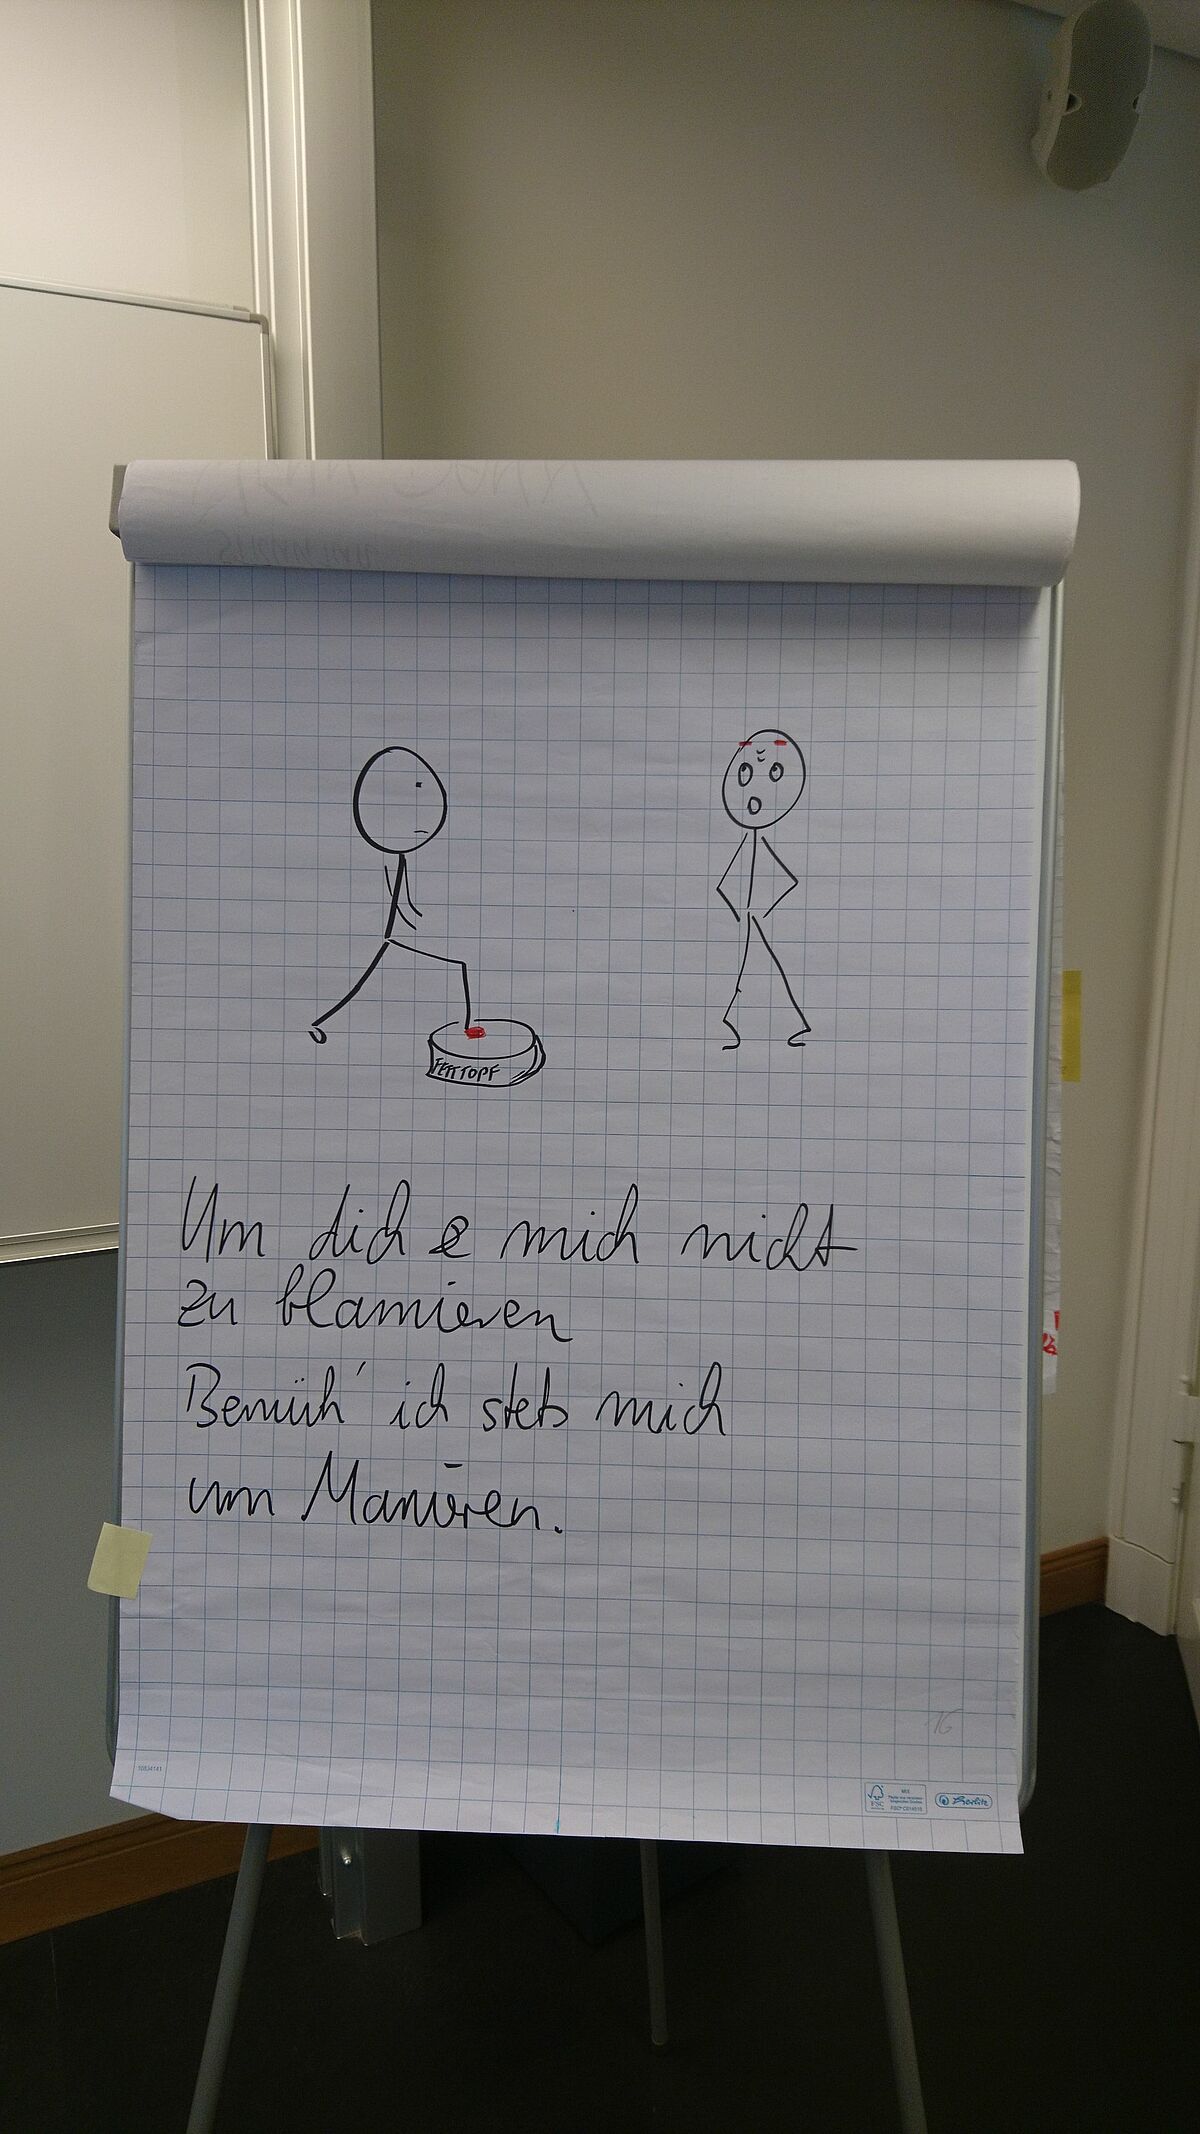 FETTTOPF
Um dich & mich nicht
zu blamieren
Bemüh' ich stets mich
um Manieren.
16
10834141
MIX
FSC
FSC® C014618
Herlitz